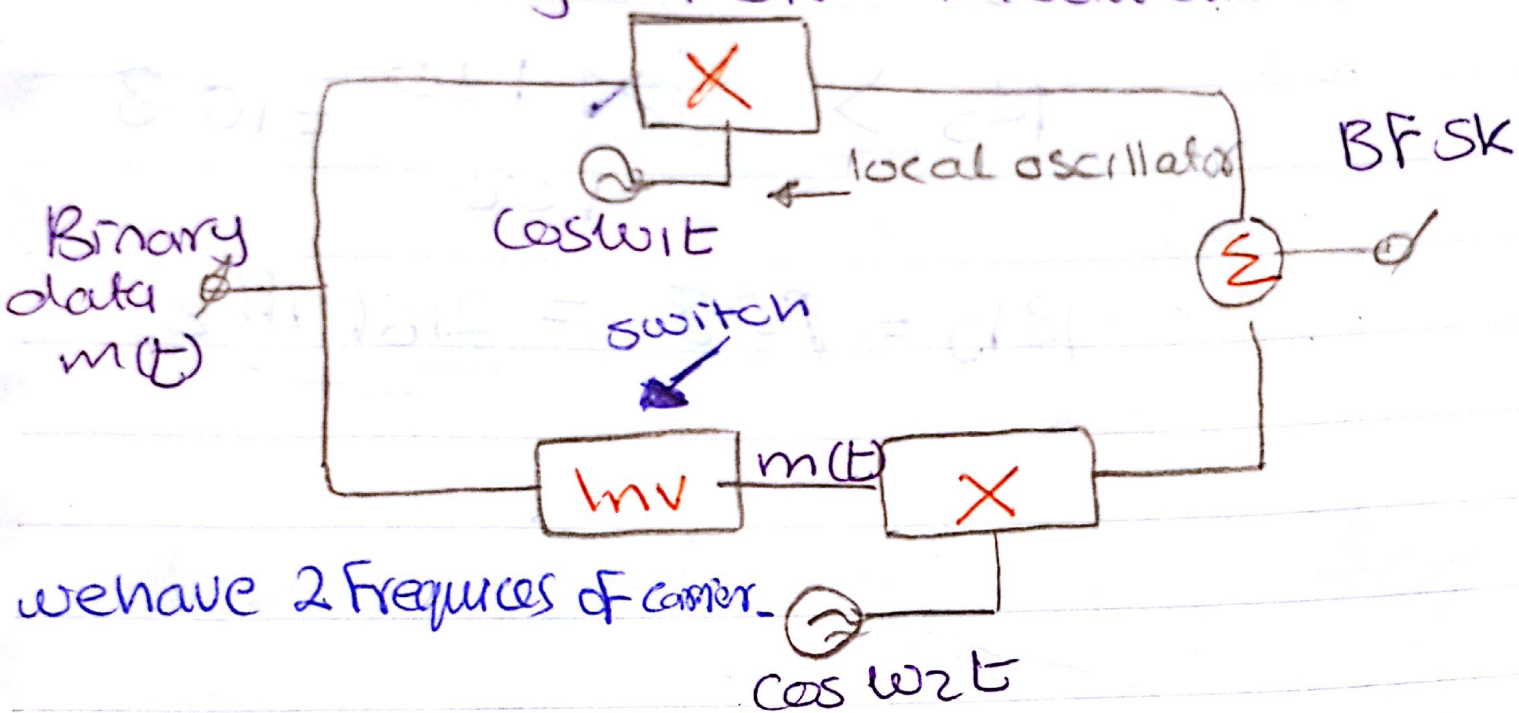 X
local oscillator
BFSK
cosw1t
Binary
data
m(t)
Σ
switch
Inv
m(t)
X
we have 2 Frequices of carrier
cos w2t